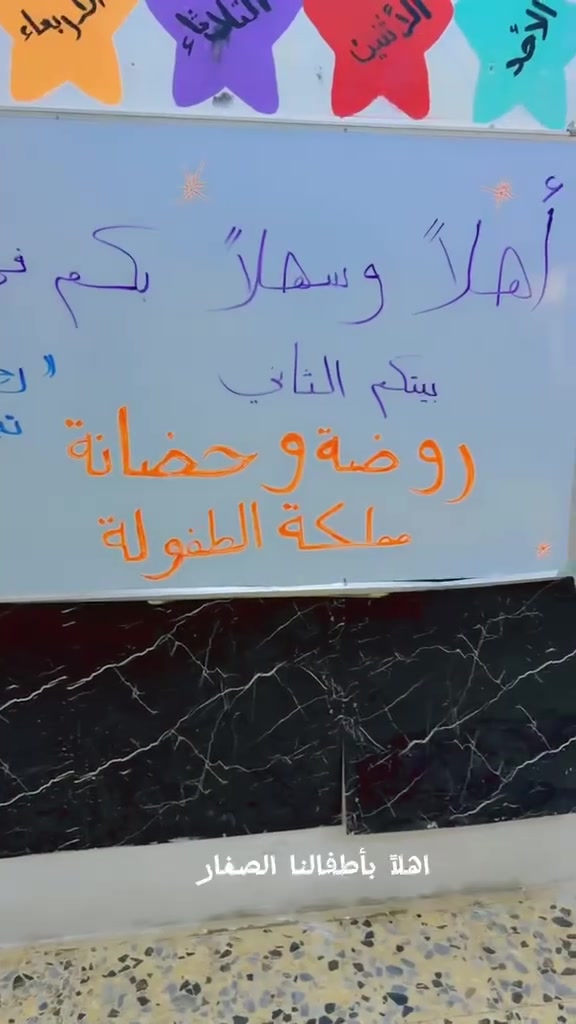 الأحد الأثنين الثلاثاء الأربعاء
أهلاً وسهلاً بكم في
بيتكم الثاني
روضة و حضانة
مملكة الطفولة
اهلاً بأطفالنا الصغار